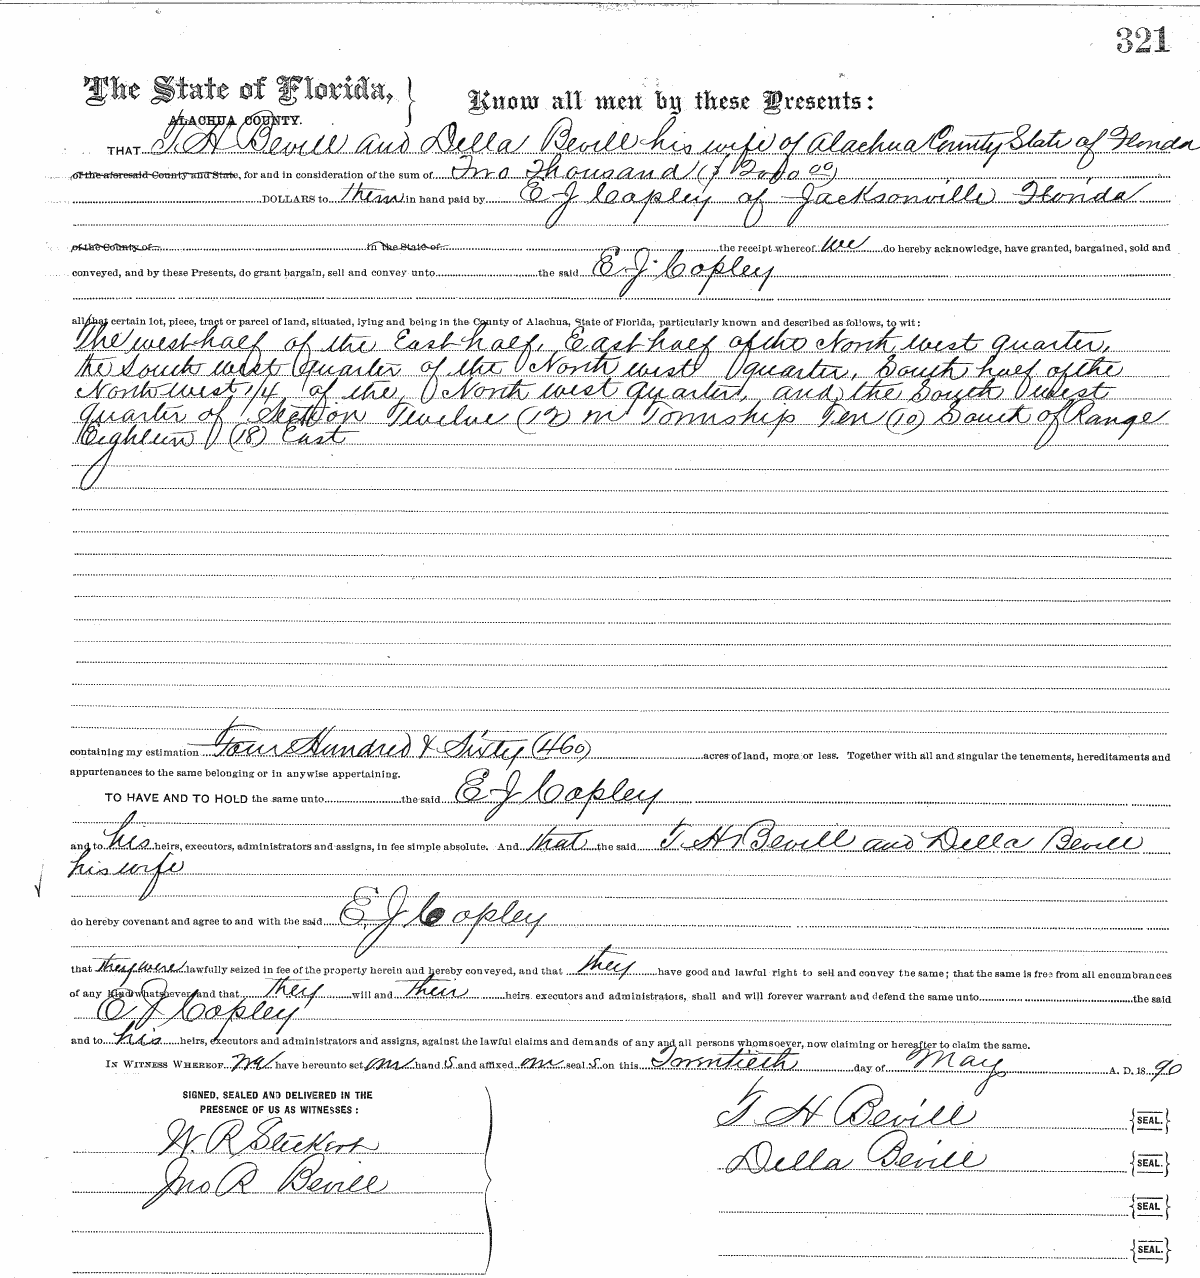 321
The State of Florida, } Know all men by these Presents:
ALACHUA COUNTY.
THAT T. H. Bevill and Della Bevill his wife of Alachua County State of Florida
of the aforesaid County and State, for and in consideration of the sum of Two Thousand ($2000.00)
DOLLARS to them in hand paid by E J Copley of Jacksonville Florida
of the County of in the State of the receipt whereof we do hereby acknowledge, have granted, bargained, sold and
conveyed, and by these Presents, do grant bargain, sell and convey unto the said E. J. Copley
all that certain lot, piece, tract or parcel of land, situated, lying and being in the County of Alachua, State of Florida, particularly known and described as follows, to wit:
The west half of the East half, East half of the North west quarter,
the South west quarter of the North west quarter, South half of the
North west 1/4 of the North west quarter, and the South west
quarter of Section Twelve (12) in Township Ten (10) South of Range
Eighteen (18) East
containing my estimation Four Hundred & Sixty (460) acres of land, more or less. Together with all and singular the tenements, hereditaments and
appurtenances to the same belonging or in anywise appertaining.
TO HAVE AND TO HOLD the same unto the said E J Copley
and to his heirs, executors, administrators and assigns, in fee simple absolute. And that the said T. H. Bevill and Della Bevill
his wife
do hereby covenant and agree to and with the said E J Copley
that they were lawfully seized in fee of the property herein and hereby conveyed, and that they have good and lawful right to sell and convey the same; that the same is free from all encumbrances
of any kind whatsever and that they will and their heirs. executors and administrators, shall and will forever warrant and defend the same unto the said
E J Copley
and to his heirs, executors and administrators and assigns, against the lawful claims and demands of any and all persons whomsoever, now claiming or hereafter to claim the same.
IN WITNESS WHEREOF, we have hereunto set our hand s and affixed our seal s on this Twentieth day of May A. D. 18 90
SIGNED, SEALED AND DELIVERED IN THE
PRESENCE OF US AS WITNESSES:
T H Bevill {SEAL.}
W. R.
Della Bevill {SEAL.}
Jno R Bevill
{SEAL}
{SEAL.}